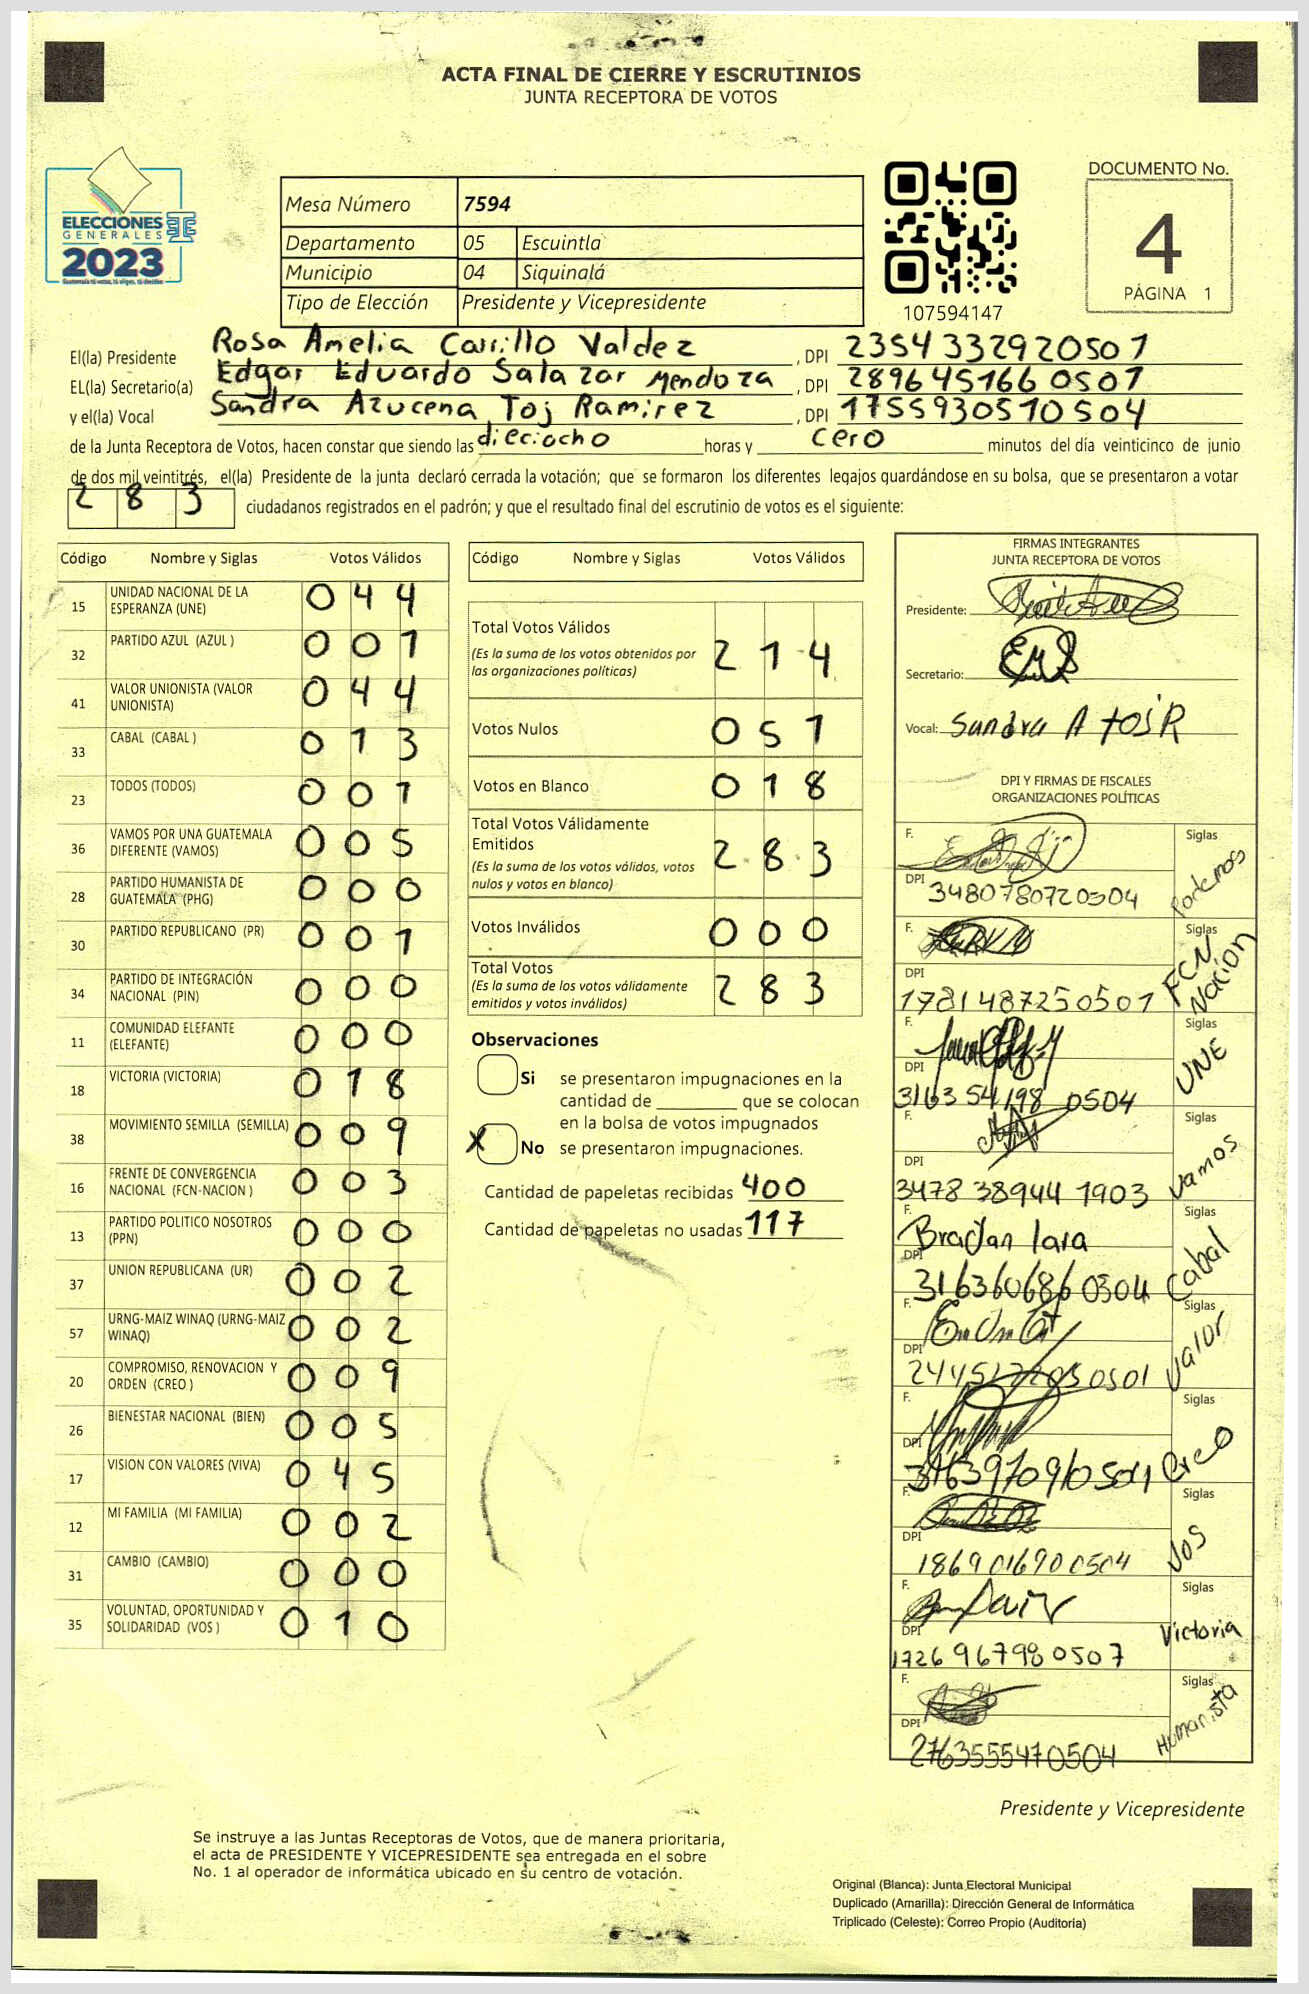 ACTA FINAL DE CIERRE Y ESCRUTINIOS
JUNTA RECEPTORA DE VOTOS
ELECCIONES
GENERALES
2023
Mesa Número 7594
Departamento 05 Escuintla
Municipio 04 Siquinalá
Tipo de Elección Presidente y Vicepresidente
107594147
DOCUMENTO No.
4
PÁGINA 1
El(la) Presidente Rosa Amelia Carrillo Valdez, DPI 2354332920501
EL(la) Secretario(a) Edgar Eduardo Salazar Mendoza, DPI 2896451660501
y el(la) Vocal Sandra Azucena Toj Ramirez, DPI 1755930510504
de la Junta Receptora de Votos, hacen constar que siendo las dieciocho horas y cero minutos del día veinticinco de junio
de dos mil veintitrés, el(la) Presidente de la junta declaró cerrada la votación; que se formaron los diferentes legajos guardándose en su bolsa, que se presentaron a votar
283 ciudadanos registrados en el padrón; y que el resultado final del escrutinio de votos es el siguiente:
Código Nombre y Siglas Votos Válidos
15 UNIDAD NACIONAL DE LA ESPERANZA (UNE) 044
32 PARTIDO AZUL (AZUL ) 001
41 VALOR UNIONISTA (VALOR UNIONISTA) 044
33 CABAL (CABAL ) 013
23 TODOS (TODOS) 001
36 VAMOS POR UNA GUATEMALA DIFERENTE (VAMOS) 005
28 PARTIDO HUMANISTA DE GUATEMALA (PHG) 000
30 PARTIDO REPUBLICANO (PR) 001
34 PARTIDO DE INTEGRACIÓN NACIONAL (PIN) 000
11 COMUNIDAD ELEFANTE (ELEFANTE) 000
18 VICTORIA (VICTORIA) 018
38 MOVIMIENTO SEMILLA (SEMILLA) 009
16 FRENTE DE CONVERGENCIA NACIONAL (FCN-NACION ) 003
13 PARTIDO POLITICO NOSOTROS (PPN) 000
37 UNION REPUBLICANA (UR) 002
57 URNG-MAIZ WINAQ (URNG-MAIZ WINAQ) 002
20 COMPROMISO, RENOVACION Y ORDEN (CREO ) 009
26 BIENESTAR NACIONAL (BIEN) 005
17 VISION CON VALORES (VIVA) 045
12 MI FAMILIA (MI FAMILIA) 002
31 CAMBIO (CAMBIO) 000
35 VOLUNTAD, OPORTUNIDAD Y SOLIDARIDAD (VOS ) 010
Código Nombre y Siglas Votos Válidos
Total Votos Válidos 214
(Es la suma de los votos obtenidos por
las organizaciones políticas)
Votos Nulos 051
Votos en Blanco 018
Total Votos Válidamente
Emitidos 283
(Es la suma de los votos válidos, votos
nulos y votos en blanco)
Votos Inválidos 000
Total Votos 283
(Es la suma de los votos válidamente
emitidos y votos inválidos)
Observaciones
Si se presentaron impugnaciones en la
cantidad de ________ que se colocan
en la bolsa de votos impugnados
X No se presentaron impugnaciones.
Cantidad de papeletas recibidas 400
Cantidad de papeletas no usadas 117
FIRMAS INTEGRANTES
JUNTA RECEPTORA DE VOTOS
Presidente:
Secretario:
Vocal: Sandra A toj R
DPI Y FIRMAS DE FISCALES
ORGANIZACIONES POLÍTICAS
F. Siglas
DPI 3480780720504 Podemos
F. Siglas
DPI 1781487250501 FCN Nacion
F. Siglas
DPI 3163541980504 UNE
F. Siglas
DPI 3478389441903 Vamos
F. Brayan Lara Siglas
DPI 3163606860504 Cabal
F. Siglas
DPI Valor
F. Siglas
DPI Creo
F. Siglas
DPI 1869016900504 VOS
F. Siglas
DPI 1726967980507 Victoria
F. Siglas
DPI 2763555470504 Humanista
Presidente y Vicepresidente
Se instruye a las Juntas Receptoras de Votos, que de manera prioritaria,
el acta de PRESIDENTE Y VICEPRESIDENTE sea entregada en el sobre
No. 1 al operador de informática ubicado en su centro de votación.
Original (Blanca): Junta Electoral Municipal
Duplicado (Amarilla): Dirección General de Informática
Triplicado (Celeste): Correo Propio (Auditoría)